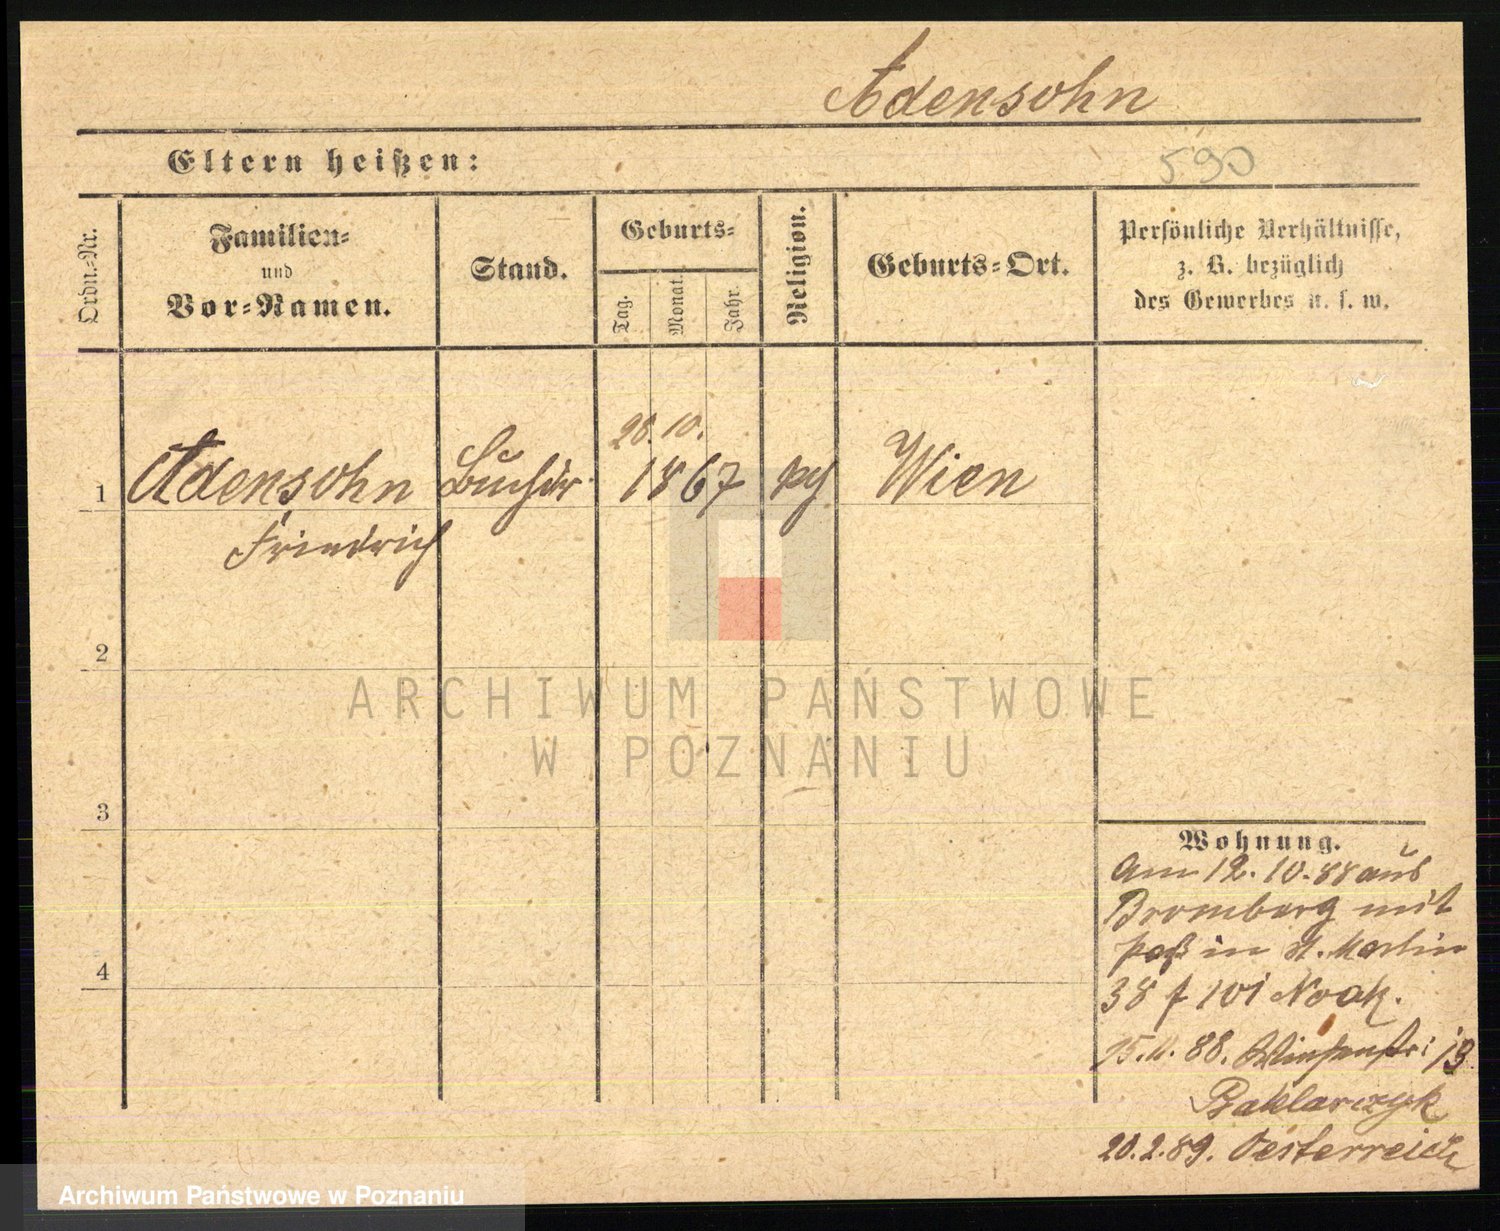 Adensohn
Eltern heißen:
590
Ordn.-Nr.
Familien-
und
Vor-Namen.
Stand.
Geburts-
Tag.
Monat.
Jahr.
Religion.
Geburts-Ort.
Persönliche Verhältnisse,
z. B. bezüglich
des Gewerbes u. s. w.
20.10.
1 Adensohn 1867 Wien
Friedrich
2
ARCHIWUM PAŃSTWOWE
W POZNANIU
3
4
Wohnung.
Am 12.10.88 aus
Bromberg mit
Paß in St. Martin
38 f 101 Noak.
15.11.88. 13
Baklarczyk
20.2.89. Oesterreich
Archiwum Państwowe w Poznaniu